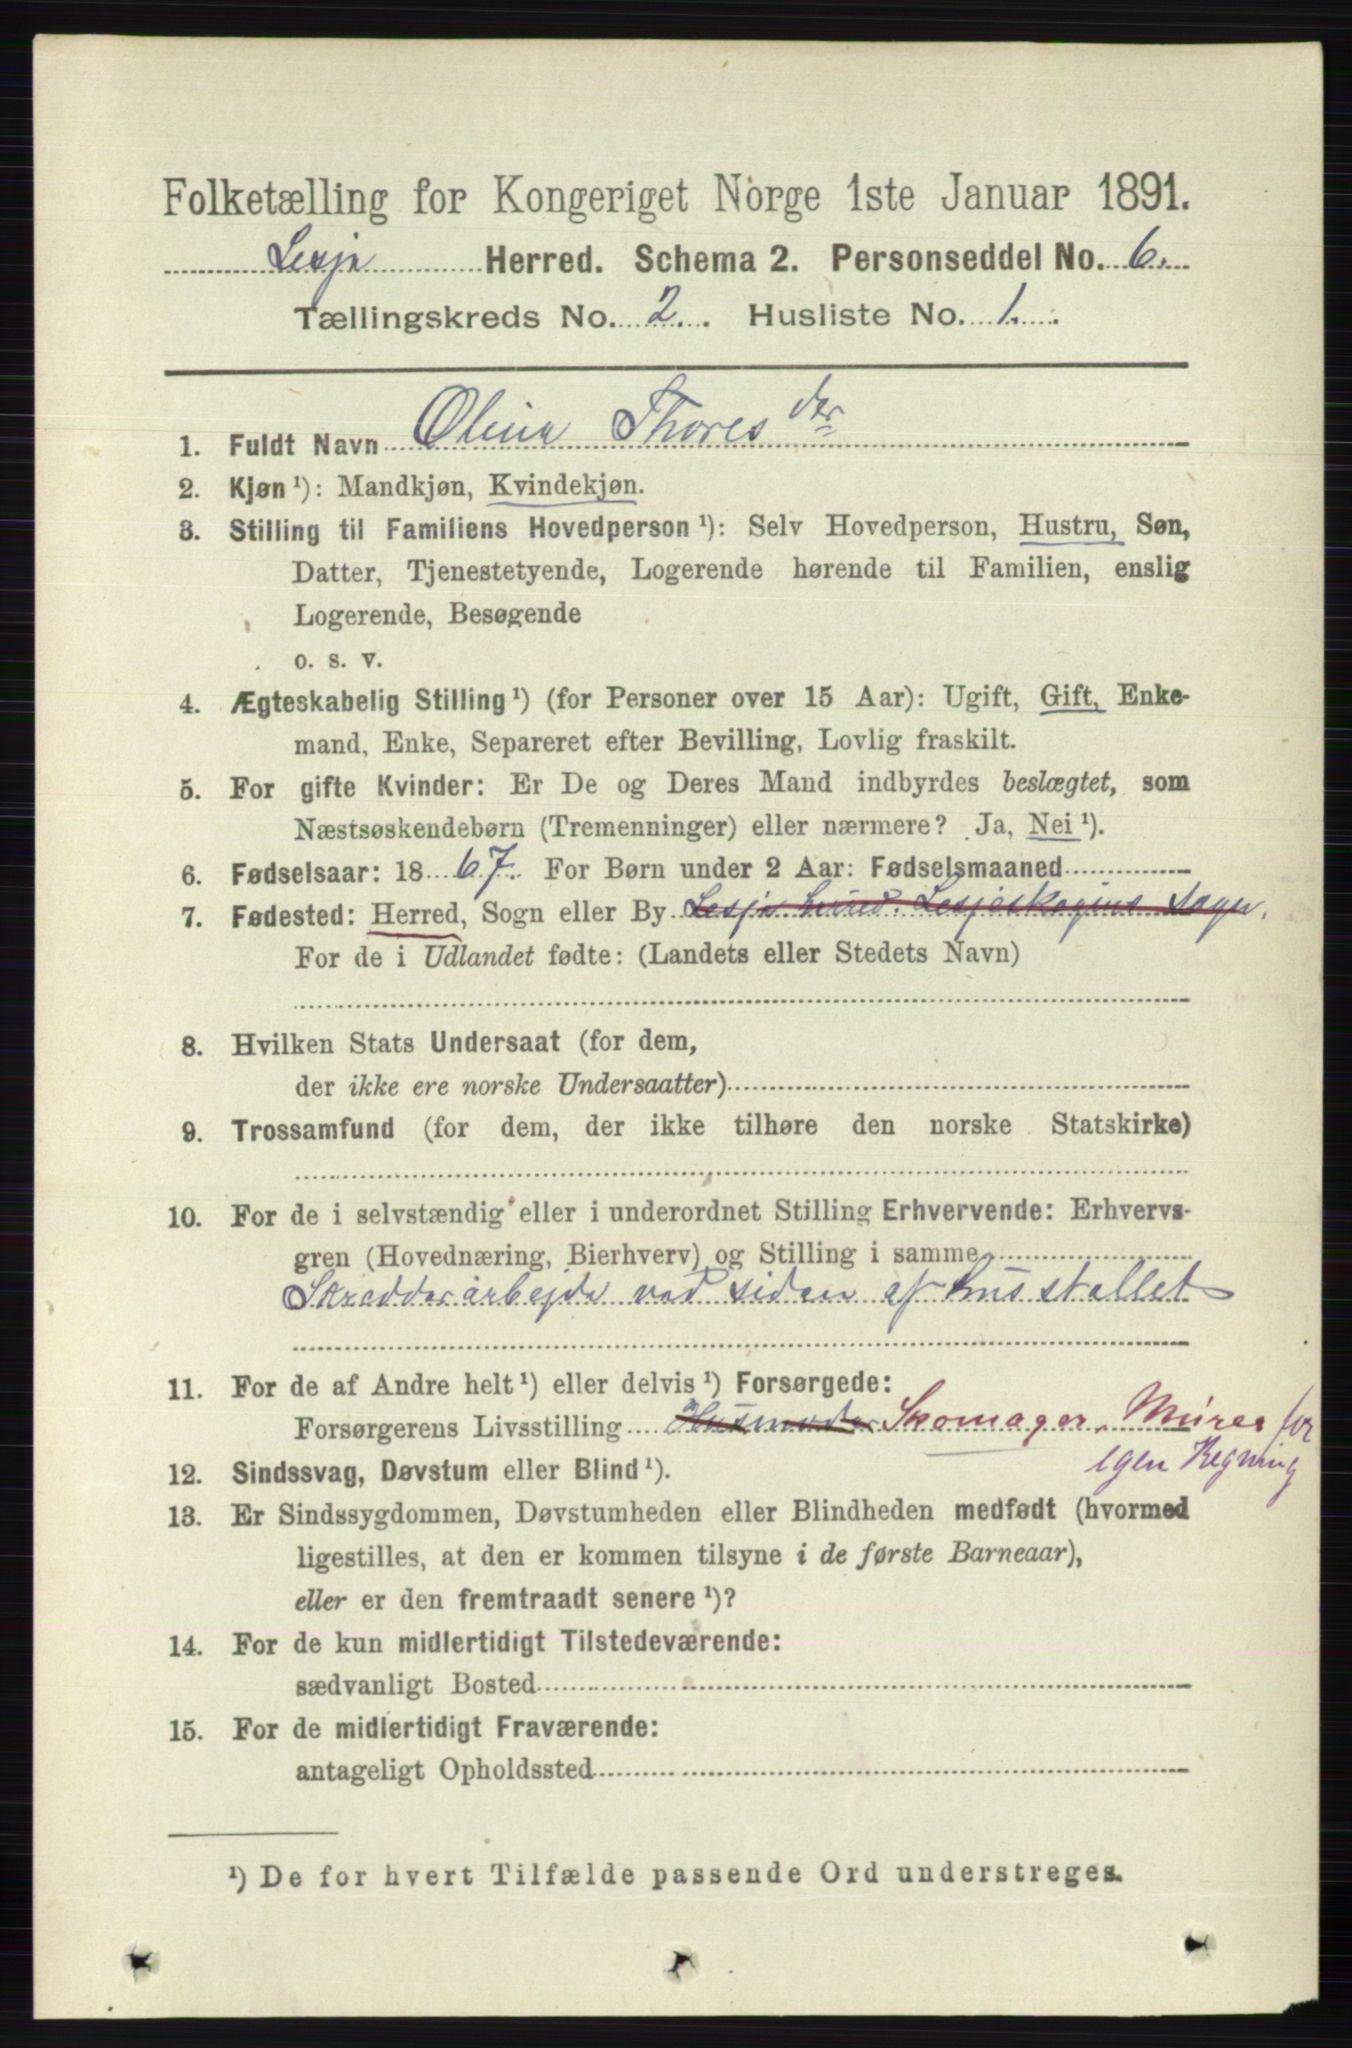 Folketælling for Kongeriget Norge 1ste Januar 1891.
Lesja Herred. Schema 2. Personseddel No. 6.
Tællingskreds No. 2. Husliste No. 1.
1. Fuldt Navn Olina Thores der
2. Kjøn ¹): Mandkjøn, Kvindekjøn.
3. Stilling til Familiens Hovedperson ¹): Selv Hovedperson, Hustru, Søn,
Datter, Tjenestetyende, Logerende hørende til Familien, enslig
Logerende, Besøgende
o. s. v.
4. Ægteskabelig Stilling ¹) (for Personer over 15 Aar): Ugift, Gift, Enke-
mand, Enke, Separeret efter Bevilling, Lovlig fraskilt.
5. For gifte Kvinder: Er De og Deres Mand indbyrdes beslægtet, som
Næstsøskendebørn (Tremenninger) eller nærmere? Ja, Nei ¹).
6. Fødselsaar: 18 67. For Børn under 2 Aar: Fødselsmaaned
7. Fødested: Herred, Sogn eller By Lesja herred. Lesjeskogens
For de i Udlandet fødte: (Landets eller Stedets Navn)
8. Hvilken Stats Undersaat (for dem,
der ikke ere norske Undersaatter)
9. Trossamfund (for dem, der ikke tilhøre den norske Statskirke)
10. For de i selvstændig eller i underordnet Stilling Erhvervende: Erhvervs-
gren (Hovednæring, Bierhverv) og Stilling i samme
Skrædderarbejde ved siden af husstellet
11. For de af Andre helt ¹) eller delvis ¹) Forsørgede:
Forsørgerens Livsstilling Husmoder Skomager, Murer for
egen Regning
12. Sindssvag, Døvstum eller Blind ¹).
13. Er Sindssygdommen, Døvstumheden eller Blindheden medfødt (hvormed
ligestilles, at den er kommen tilsyne i de første Barneaar),
eller er den fremtraadt senere ¹)?
14. For de kun midlertidigt Tilstedeværende:
sædvanligt Bosted
15. For de midlertidigt Fraværende:
antageligt Opholdssted
¹) De for hvert Tilfælde passende Ord understreges.